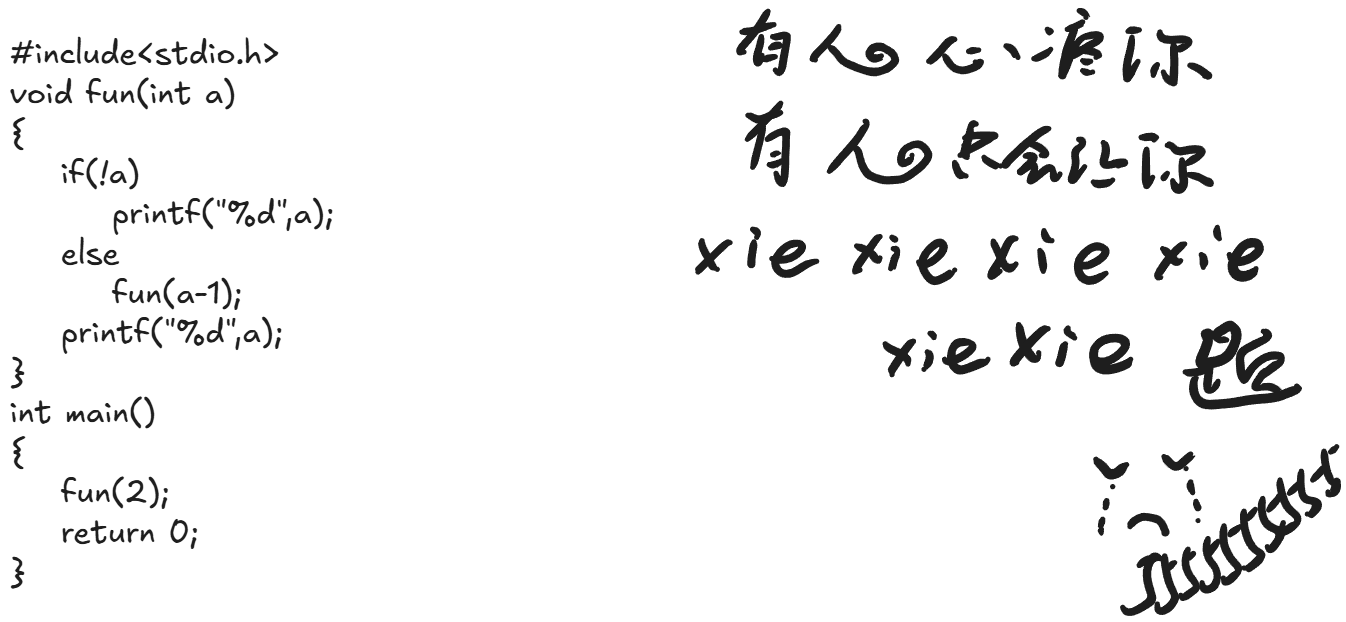 #include<stdio.h>
void fun(int a)
{
if(!a)
printf("%d",a);
else
fun(a-1);
printf("%d",a);
}
int main()
{
fun(2);
return 0;
}
有人心疼你
有人点会让你
xie xie xie xie
xie xie 题